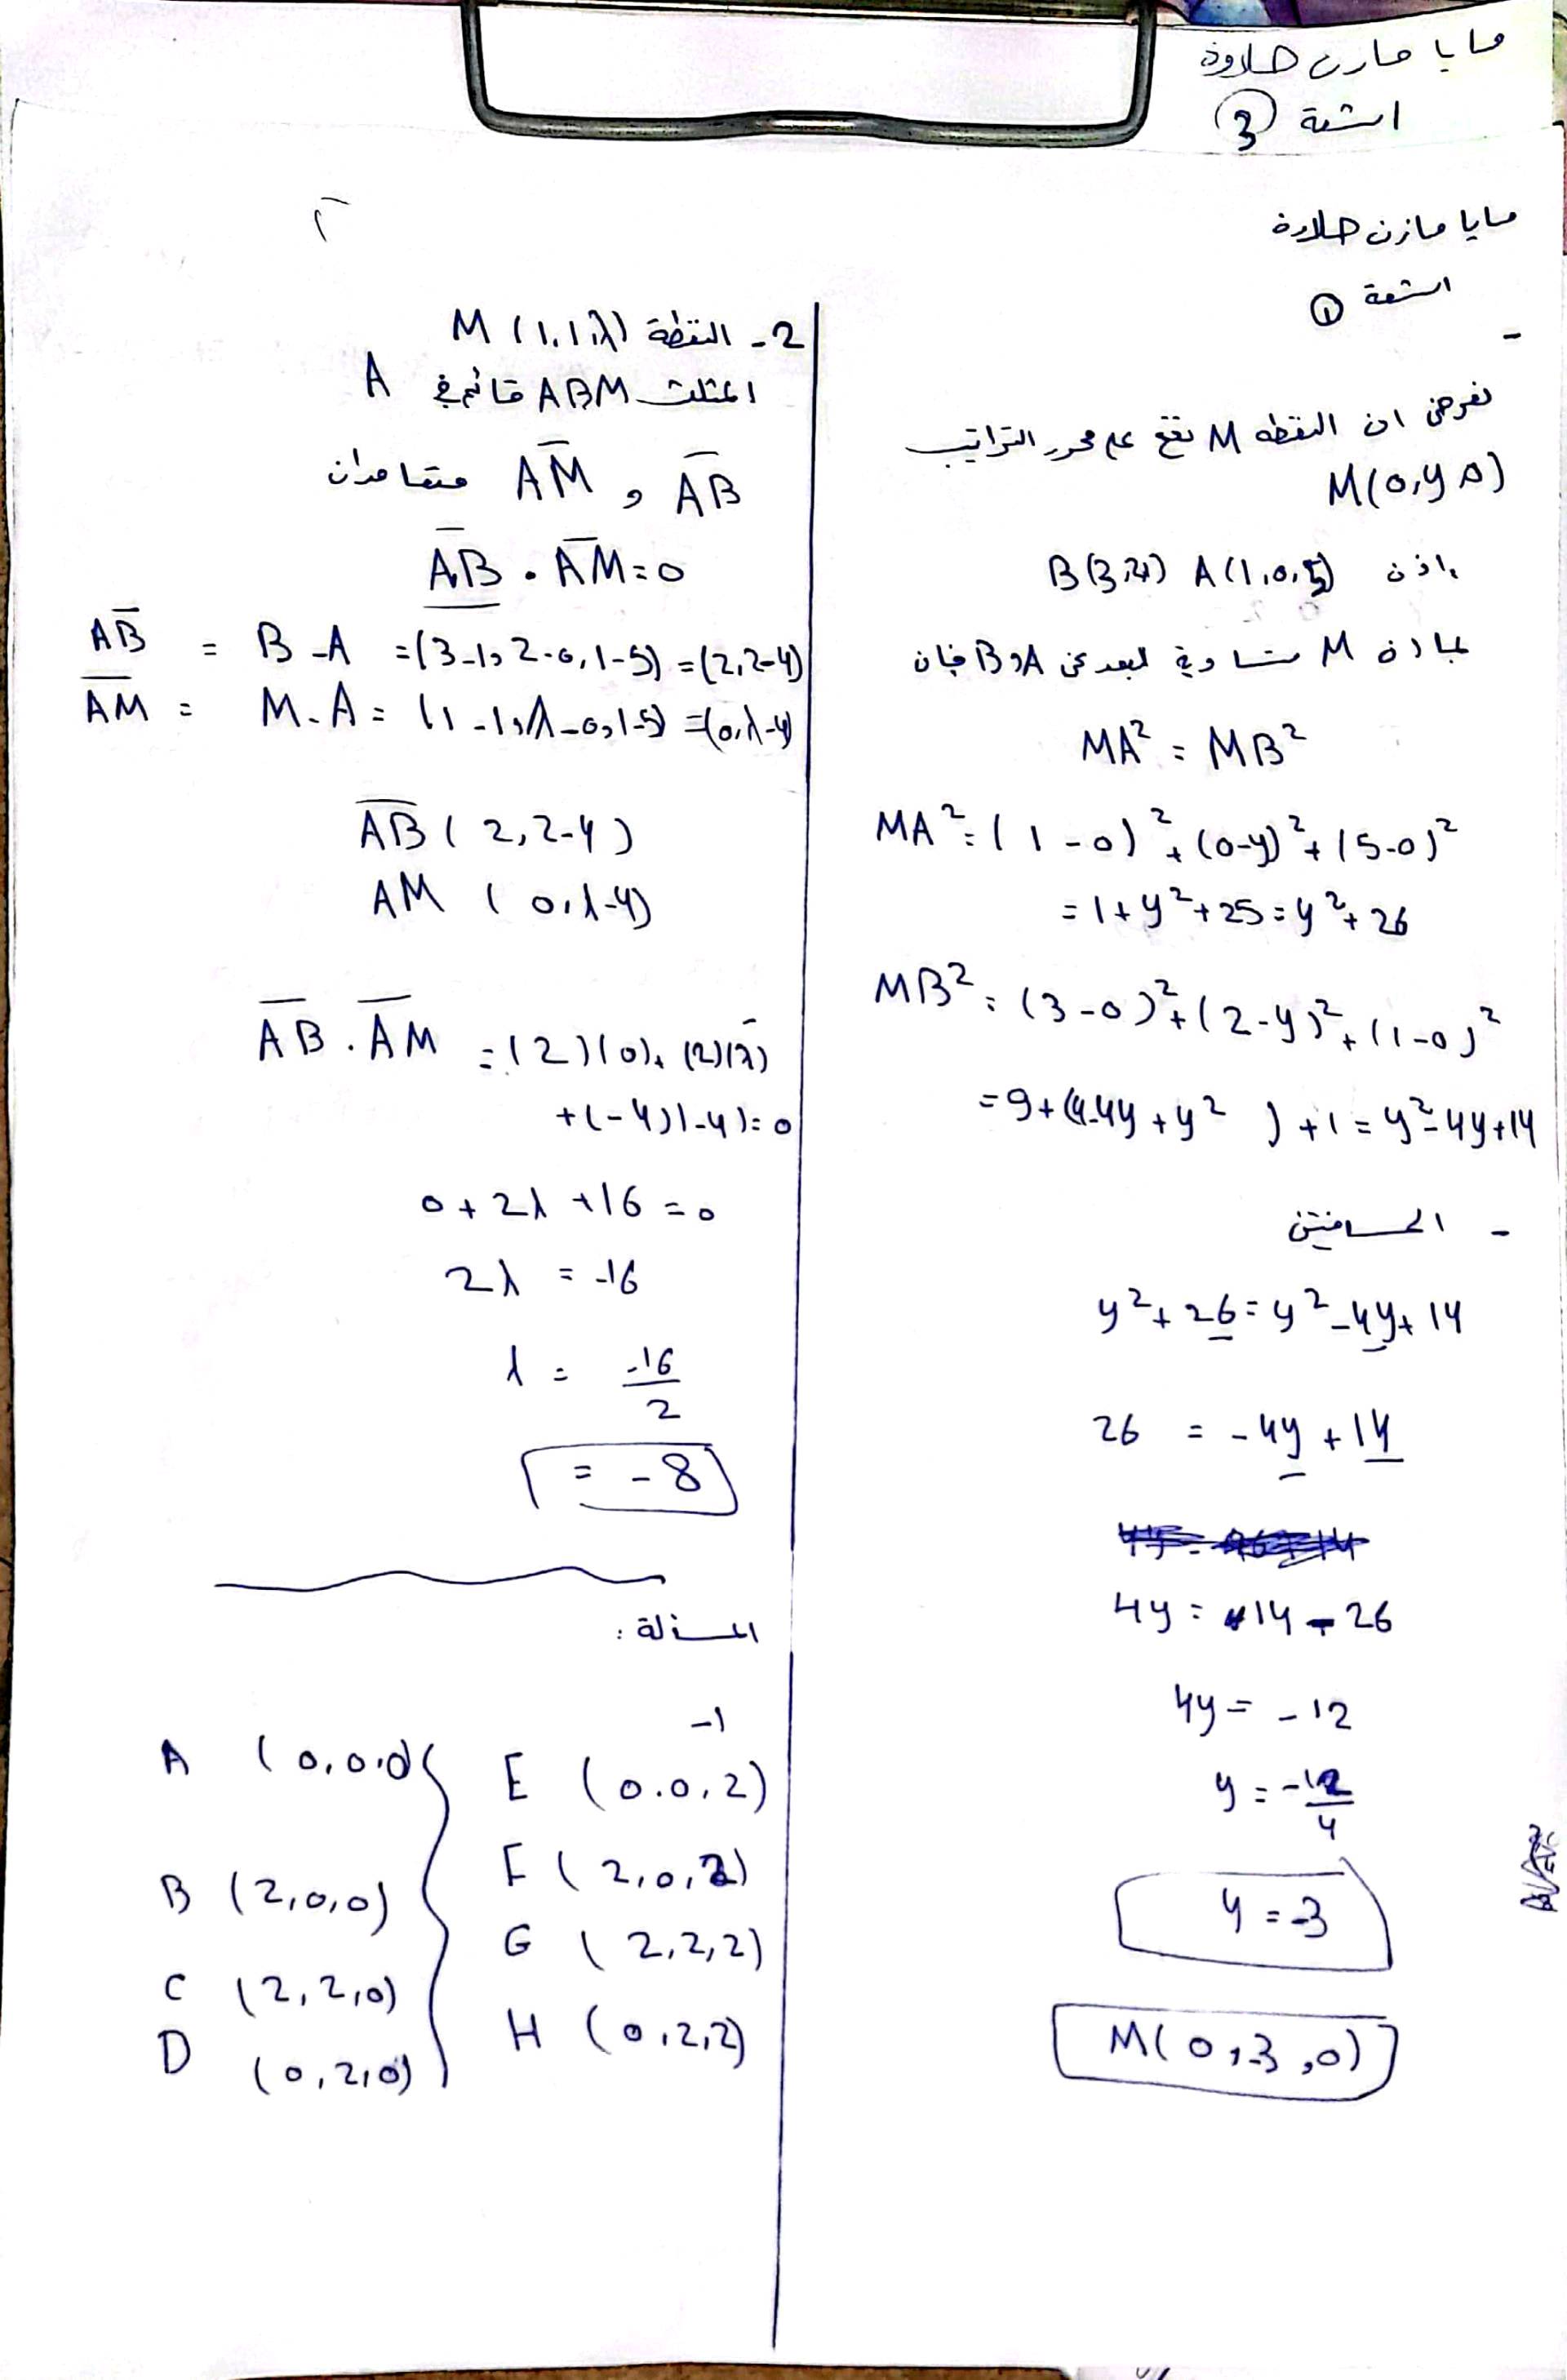 مايا مازن حلاوة
الشعبة 3
مايا مازن حلاوة
الشعبة 1
نفرض ان النقطه M تقع على محور التراتيب
M(0,y,0)
اذن A(1,0,5) B(3,2,1)
بما ان M متساوية البعد عن A و B فإن
MA² = MB²
MA² = (1-0)² + (0-y)² + (5-0)²
= 1+y²+25 = y²+26
MB² = (3-0)² + (2-y)² + (1-0)²
= 9+(4-4y+y²) + 1 = y²-4y+14
- المسافتين
y²+26 = y²-4y+14
26 = -4y+14
4y = 14-26
4y = -12
y = -12/4
y = -3
M(0,-3,0)
2- النقطة M(1,1,λ)
المثلث ABM قائم في A
AB و AM متعامدان
AB . AM = 0
AB = B-A = (3-1, 2-0, 1-5) = (2,2-4)
AM = M-A = (1-1, λ-0, 1-5) = (0,λ-4)
AB (2,2-4)
AM (0,λ-4)
AB . AM = (2)(0)+(2)(λ)
+(-4)(-4)=0
0+2λ+16=0
2λ = -16
λ = -16/2
= -8
المسألة:
-1
A (0,0,0)
B (2,0,0)
C (2,2,0)
D (0,2,0)
E (0.0,2)
F (2,0,2)
G (2,2,2)
H (0,2,2)